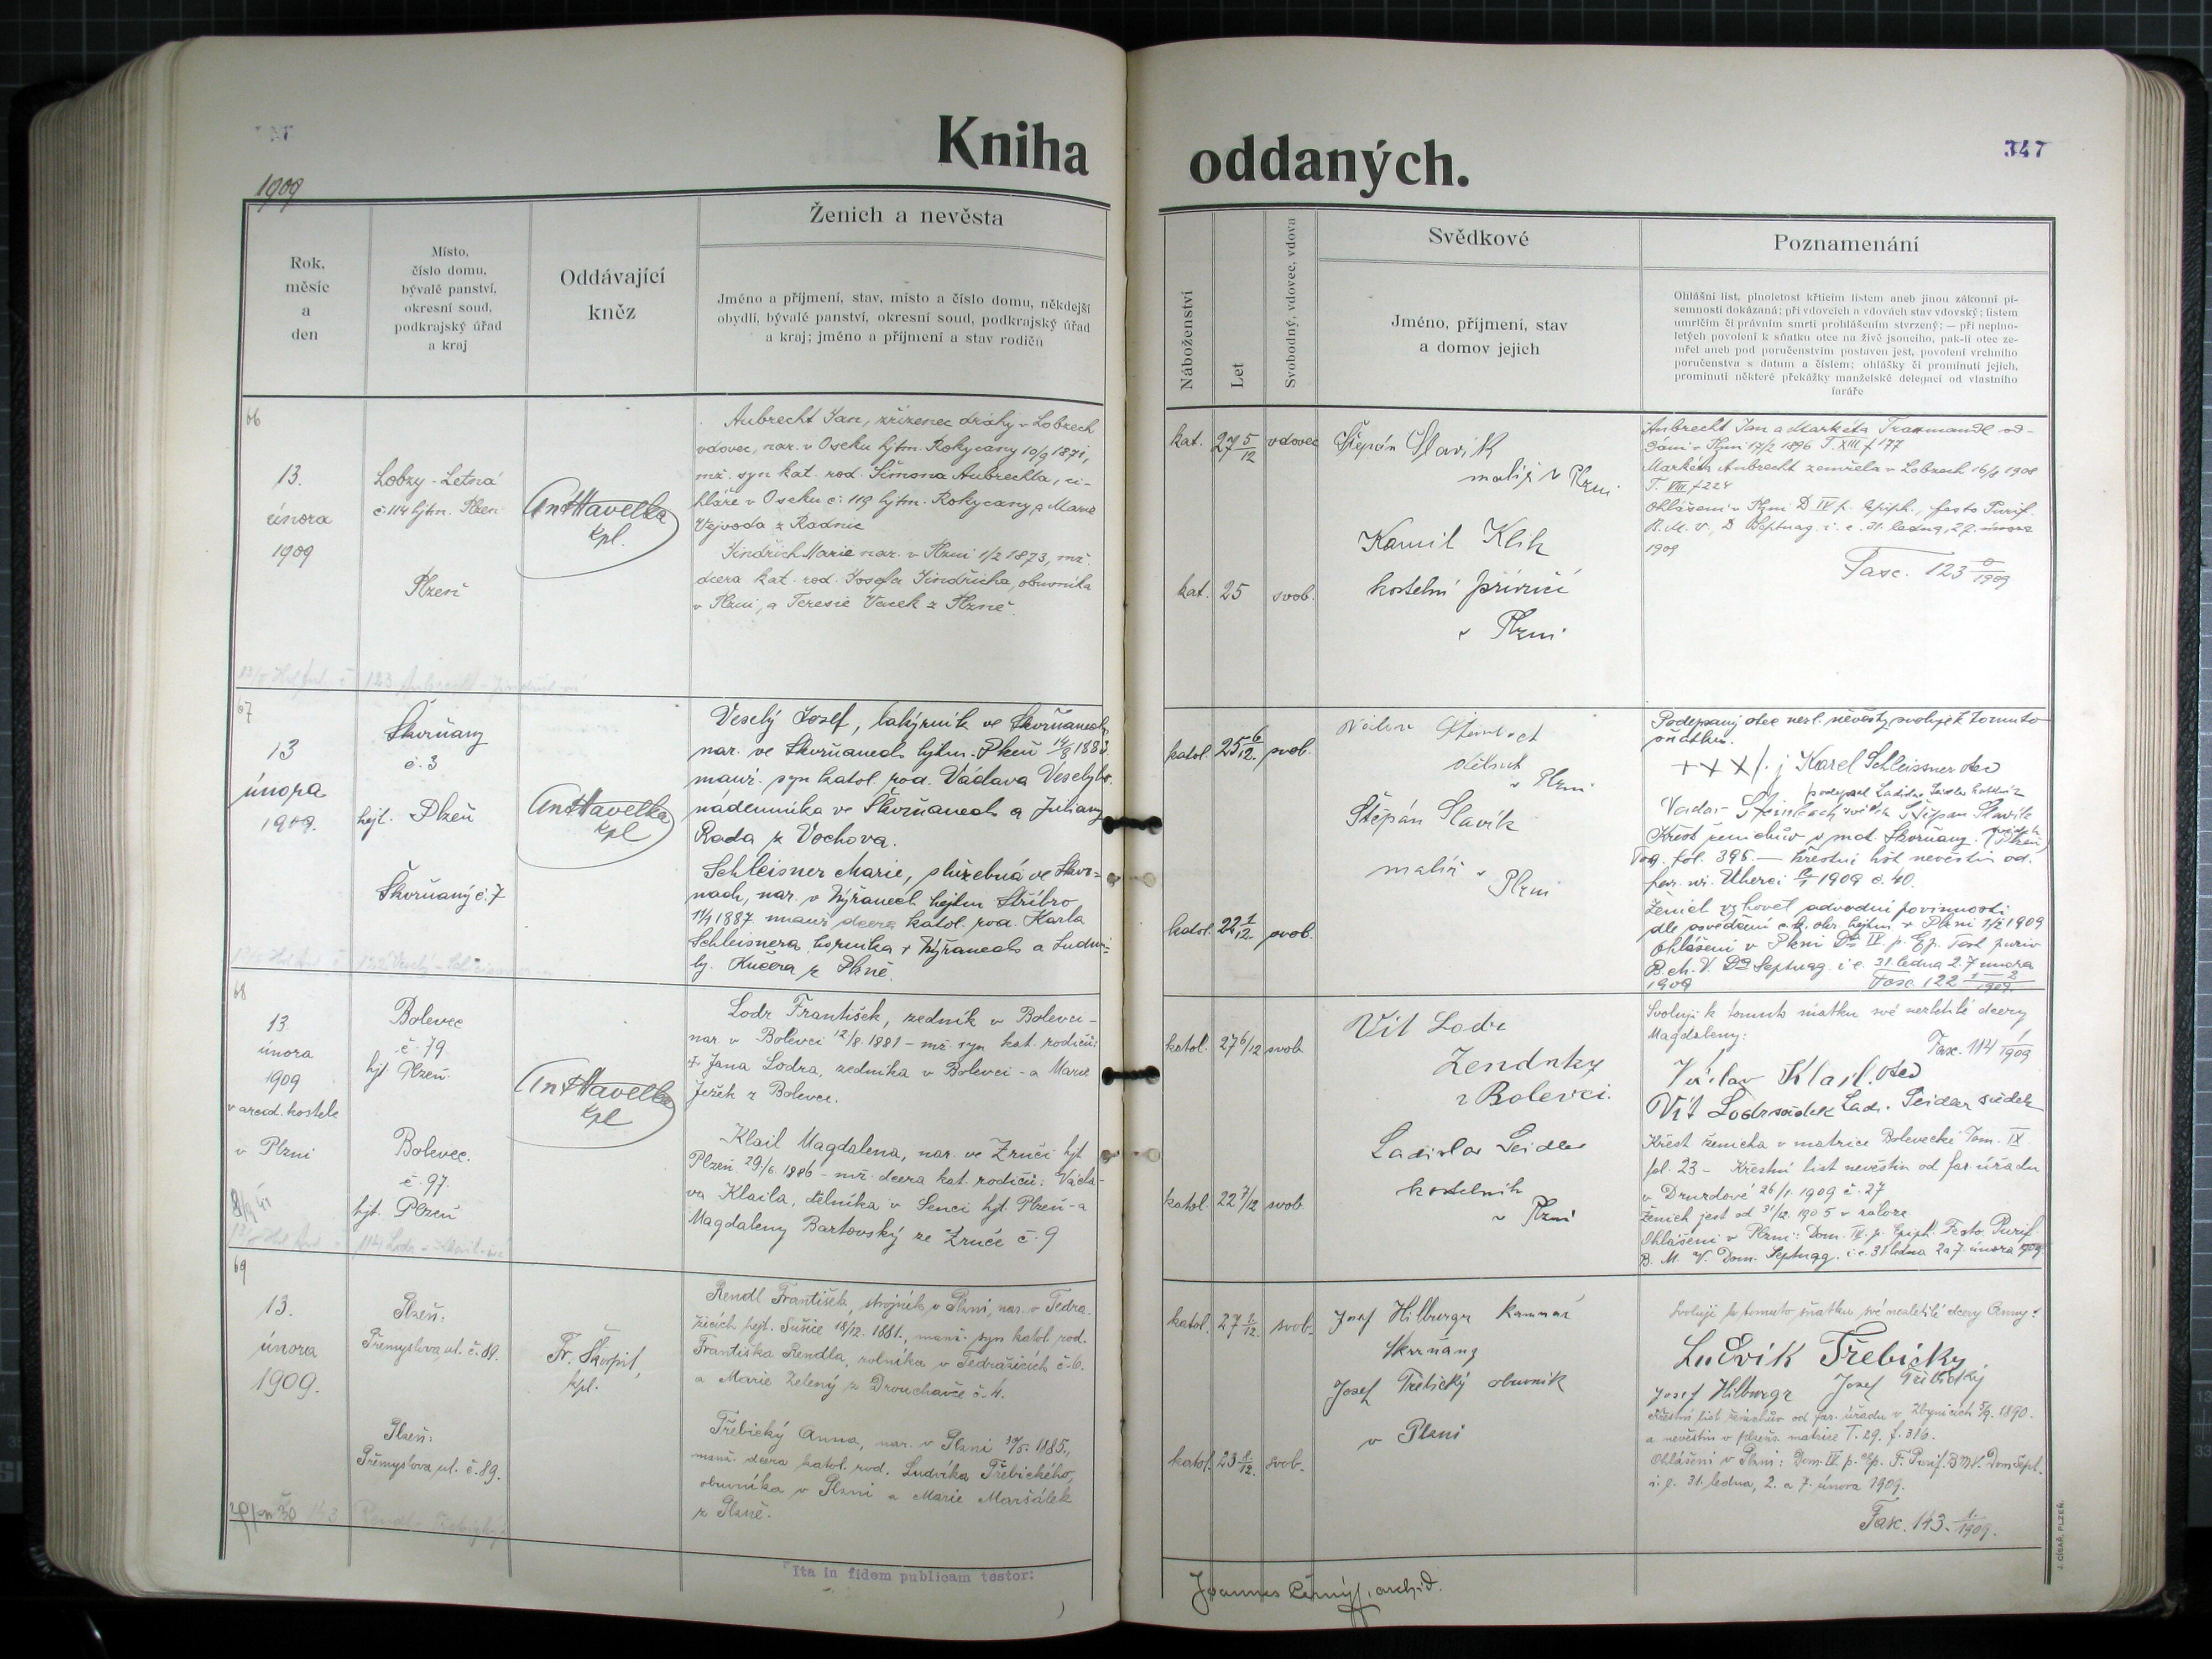 Kniha oddaných.
347
1909
Rok,
měsíc
a
den
Místo,
číslo domu,
bývalé panství,
okresní soud,
podkrajský úřad
a kraj
Oddávající
kněz
Ženich a nevěsta
Jméno a příjmení, stav, místo a číslo domu, někdejší
obydlí, bývalé panství, okresní soud, podkrajský úřad
a kraj; jméno a příjmení a stav rodičů
Náboženství
Let
Svobodný, vdovec, vdova
Svědkové
Jméno, příjmení, stav
a domov jejich
Poznamenání
Ohlášní list, plnoletost křticím listem aneb jinou zákonní pí-
semností dokázaná; při vdovcích a vdovách stav vdovský; listem
umrlčím či právním smrti prohlášením stvrzený; — při neplno-
letých povolení k sňatku otce na živě jsoucího, pak-li otec ze-
mřel aneb pod poručenstvím postaven jest, povolení vrchního
poručenstva s datum a číslem; ohlášky či prominutí jejich,
prominutí některé překážky manželské delegací od vlastního
faráře
66
13.
února
1909
Lobzy - Letná
č. 114 hjtm. Plzeň
Plzeň
Ant Havelka
kpl.
Aubrecht Jan, zřízenec dráhy v Lobzech
vdovec, nar. v Oseku hjtm. Rokycany 10/9 1871,
mž. syn kat. rod. Šimona Aubrechta, ci-
hláře v Oseku č. 119 hjtm. Rokycany a Marie
Vejvoda z Radnic
Jindřich Marie nar. v Plzni 1/2 1873, mž.
dcera kat. rod. Josefa Jindřicha, obuvníka
v Plzni, a Teresie Vacek z Plzně.
kat. 27 5/12 vdovec
kat. 25 svob.
Štěpán Slavík
malíř v Plzni
Kamil Klik
kostelní
v Plzni
Aubrecht Jan a Markéta od-
dáni v Plzni 17/2 1896 T. XIII f 177
Markéta Aubrecht zemřela v Lobzech 16/8 1908
T. VIII f 224
Ohlášeni v Plzni D IV p. Epiph., festo Purif.
B. M. V., D Septuag. i. e. 31. ledna, 2 7. února
1909
Fasc. 123 0/1909
67
13
února
1909.
Škvrňany
č. 3
hejt. Plzeň
Škvrňany č. 7
Ant Havelka
kpl
Veselý Josef, lakýrník ve Škvrňanech,
nar. ve Škvrňanech hjtm. Plzeň
manž. syn katol. rod. Václava Veselýho,
nádenníka ve Škvrňanech a Juliany
Rada z Vochova.
Schleisner Marie, služebná ve Škvr-
nach, nar. v Nýřanech hejtm Stříbro
11/1 1887 manž dcera katol. rod. Karla
Schleisnera, horníka v Nýřanech a Ludmi-
ly Kučera z Plzně.
katol. 25 6/12. svob.
katol. 22 1/12. svob.
Václav Steinbach
dělník
v Plzni
Štěpán Slavík
malíř v
Plzni
Podepsaný otec nezl. nevěsty svoluje k tomuto
sňatku.
+ X X /. j Karel Schleissner otec
podepsal Ladislav Seidler kostelník
Václav Steinbach svědek Štěpán Slavík
Křest ženichův v mat. Škvrňany (Plzeň)
fol. 395. — křestní list nevěstin od.
far. úř. Úherci 1909 č. 40.
Ženich vyhověl odvodní povinnosti
dle osvědčení c.k. okr. hejtm v Plzni 1/2 1909
Ohlášeni v Plzni IV. p. Ep. Fest puriv
B. M. V. Septuag. i e. 31. ledna 2. 7 února
1909 Fasc. 122
68
13
února
1909
v arcid. kostele
v Plzni
Bolevec
č. 79
hjt. Plzeň.
Bolevec.
č. 97.
hjt. Plzeň
Ant Havelka
kpl
Lodr František, zedník v Bolevci -
nar. v Bolevci 12/8. 1881 - mž. syn kat. rodičů:
Jana Lodra, zedníka v Bolevci - a Marie
Ježek z Bolevce.
Klail Magdalena, nar. ve Zruči hjt
Plzeň 29./6. 1886 - mž. dcera kat. rodičů: Václa-
va Klaila, dělníka v Senci hjt. Plzeň - a
Magdaleny Bartovský ze Zruče č. 9
katol. 27 6/12 svob
katol. 22 7/12 svob
Vít Lodr
z Bolevci.
Ladislav Seidler
kostelník
v Plzni
Svoluji k tomuto sňatku své nezletilé dcery
Magdaleny:
Fasc. 114 1/1909
Václav Klail. otec
Vít Lodr svědek Lad. Seidler svědek
Křest ženicha v matrice Bolevecké Tom. IX
fol. 23 - Křestní list nevěstin od far. úřadu
v Druzdové 26/1. 1909 č. 27
Ženich jest od 31/12. 1905 v záloze
Ohlášeni v Plzni: Dom. IV. p. Epiph. Festo Purif.
B. M. V. Dom. Septuag. i. e. 31. ledna 2 a 7. února 1909.
69
13.
února
1909.
Plzeň:
Přemyslova ul. č. 89.
Plzeň:
Přemyslova ul. č. 89.
Fr. Škorpil,
kpl.
Rendl František, strojník v Plzni, nar. v Tedra-
žicích hejt. Sušice 18/12. 1881., manž. syn katol. rod.
Františka Rendla, rolníka v Tedražicích č. 6.
a Marie Zelený z Drouhavče č. 4.
Třebický Anna, nar. v Plzni 1885.,
manž. dcera katol. rod. Ludvíka Třebického,
obuvníka v Plzni a Marie Maršálek
z Plzně.
katol. 27 svob.
katol. 23 svob.
Josef Hilburgr
Škvrňany
Josef Třebický obuvník
v Plzni
Svoluji k tomuto sňatku své nezletilé dcery Anny:
Ludvik Třebický
Josef Hilburgr Josef Třebický
Křestní list ženichův od far. úřadu v Zbynicích 5/9. 1890.
a nevěstin v plzeňs. matrice T. 29. f. 316.
Ohlášeni v Plzni: Dom. IV p. Ep. F. Purif. B M V. Dom Sept.
i. e. 31. ledna, 2. a 7. února 1909.
Fasc. 143. 1./1909.
Ita in fidem publicam testor:
Joannes Černý, archid.
J. CÍSAŘ, PLZEŇ.